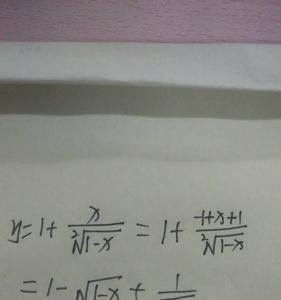 y=1+\frac{x}{\sqrt[2]{1-x}}=1+\frac{-1+x+1}{\sqrt[2]{1-x}}
=1-\sqrt{1-x}+\frac{1}{\sqrt{\phantom{x}}}